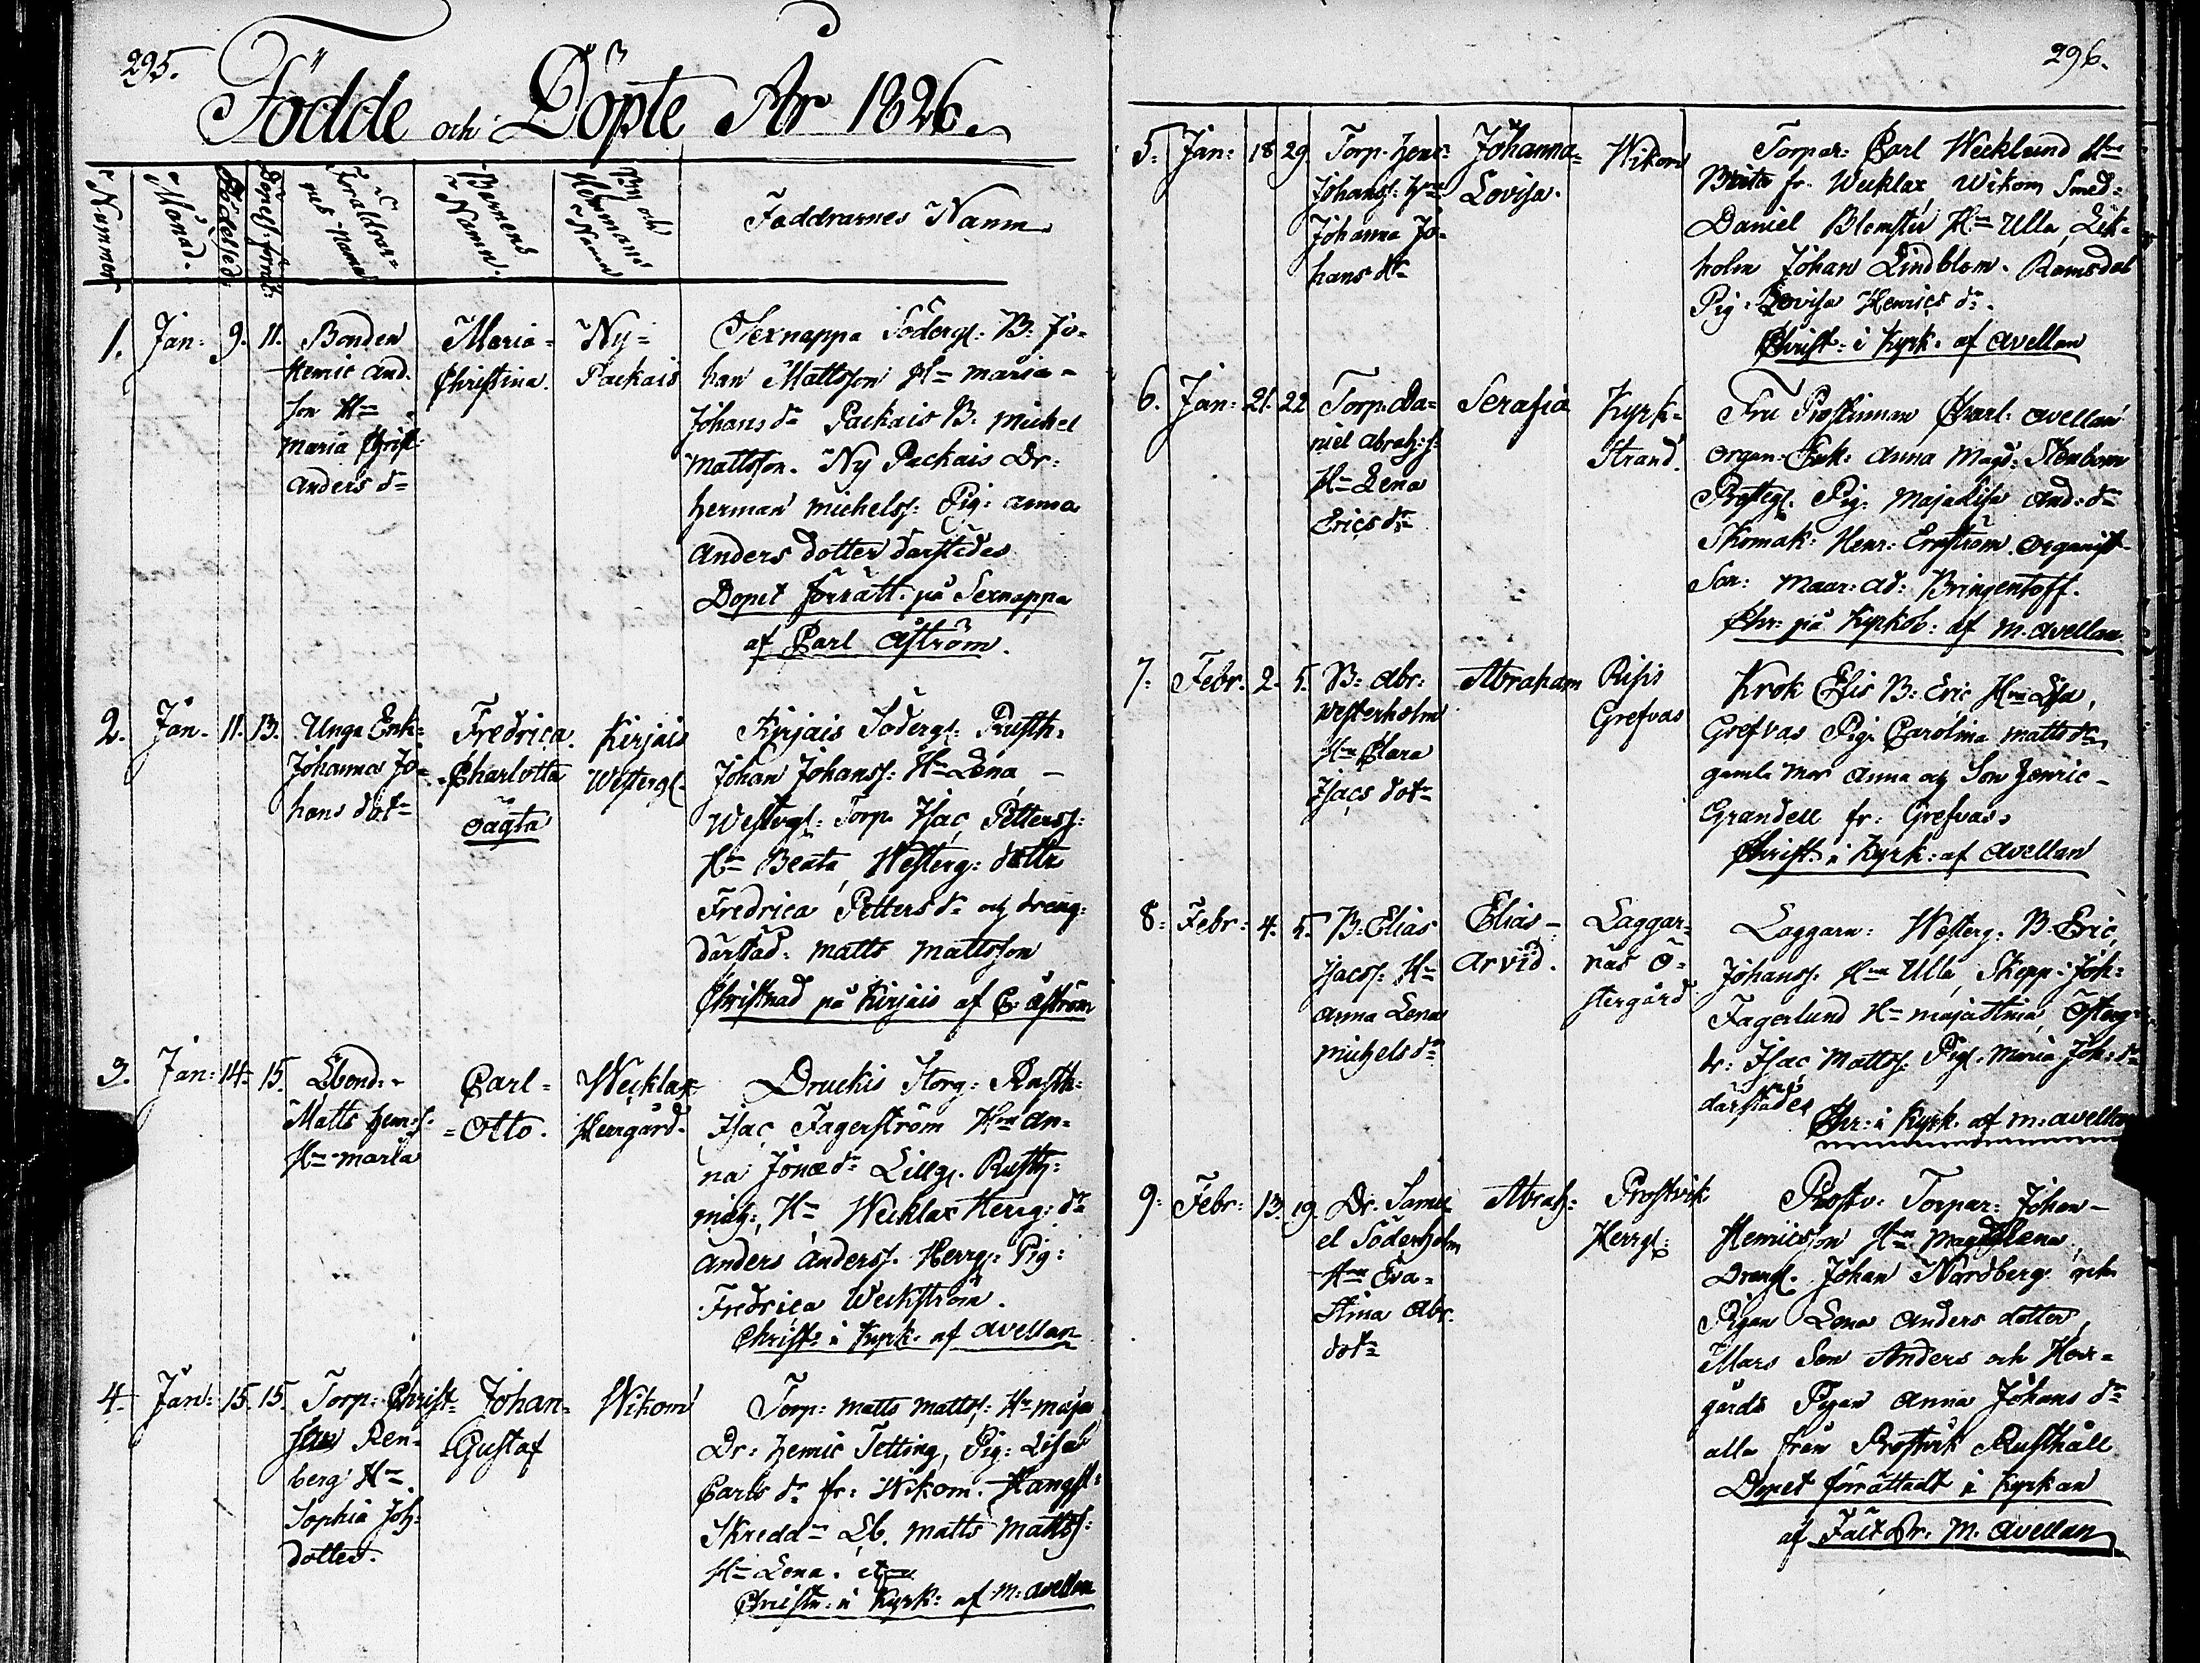 295.
Födde och Döpte År 1826.
Nummer
Månad.
Födelsed.
Föräldrarnes Namn
Barnens Namn.
By och Hemmans Namn
Faddrarnes Namn
1. Jan: 9. 11.
Bonden
Henric And.
son H:n
Maria Christ.
Anders d:r
Maria-
Christina.
Ny-
Packais
Sexnappa Södergl: B: Jo-
han Mattsson H:n Maria-
Johans d:r Packais B: Michel
Mattsson. Ny Packais Dr:
Herman Michelss: Pig: Anna
Anders dotter därstädes
Dopet förrätt. på Sexnappa
af Carl Åström.
2. Jan. 11. 13.
Unga Enk:
Johanna Jo-
hans dot:r
Fredrica.
Charlotta
oägta
Kirjais
Westergl.
Kirjais Södergl: Rusth:
Johan Johanss: H:n Lena -
Westergl: Torp. Isac Petterss:
H:n Beata, Westerg: dottr
Fredrica Petters d:r och dreng:
därstäd. Matts Mattsson
Christnad på Kirjais af C. Åström
3. Jan: 14. 15.
Lbond.
Matts Henrs.
H:n Maria
Carl-
Otto.
Wecklax-
Herrgård.
Druckis Storg: Rusth:
Isac Fagerström H:n An-
na Jonæ d:r Lillg. Rusth:
Mich: H:n Wecklax Herrg: d:r
Anders Anderss. Herrg: Pig:
Fredrica Weckström.
Christ: i Kyrk. af Avellan
4. Jan: 15. 15.
Torp: Christ-
Ren-
berg H:n
Sophia Joh:
dotter.
Johan-
Gustaf
Wikom
Torp: Matts Matts: H:n Maja
Dr: Henric Tetting, Pig: Lisa
Carls d:r fr: Wikom.
Skredd:n Lb. Matts Matts:
H:n Lena.
Christn: i Kyrk: af M: Avellan
296.
5. Jan: 18 29.
Torp. Henr:
Johanss: H:n
Johanna Jo-
hans d:r
Johanna-
Lovisa.
Wikom
Torpar: Carl Wecklund H:n
Brita fr. Wecklax, Wikom Smed:
Daniel Blomster H:n Ulla, Lek-
holm Johan Lindblom. Ramsdal
Pig: Lovisa Henrics d:r.
Christ: i Kyrk. af Avellan
6. Jan: 21. 22
Torp: Da-
niel Abrah:s:
H:n Lena
Erics d:r
Serafia
Kyrk-
Strand.
Fru Prostinnan Charl: Avellan
Organ: Enk: Anna Magd: Stenbom
Prosteg: Pig: Maja Lisa And: d:r
Skomak: Henr: Ernström. Organist-
Son: Ad: Bringentoff.
Chr: på Kyrkob: af M. Avellan
7. Febr. 2. 5.
B: Abr:
Westerholm
H:n Clara
Isacs dot:r
Abraham
Risis
Grefvas
Krok Elis B: Eric H:n Lisa,
Grefvas Pig. Carolina Matts d:r
gamla Mor Anna och Son Henric-
Grandell fr: Grefvas.
Christ: i Kyrk: af Avellan
8. Febr: 4. 5.
B: Elias
Isacss. H:n
Anna Lena
Michels d:r
Elias-
Arvid.
Laggar-
näs Ö-
stergård
Laggarn: Westerg: B: Eric
Johanss. H:n Ulla, Skepp. Joh:
Fagerlund H:n Maja Stina, Österg-
dr: Isac Matts: Pig: Maria Joh: d:r
därstädes
Chr: i Kyrk. af M: Avellan
9. Febr: 13. 19.
Dr. Samu-
el Söderholm
H:n Eva-
Stina Abr.
dot:r
Abrah:
Prostvik
Herrgl:
Prostv. Torpar: Johan-
Henricsson H:n Magdalena
Drengl. Johan Nordberg och
Pigan Lena Anders dotter,
Mars Son Anders och Herr-
gårds Pigan Anna Johans d:r
alla från Prostvik Rusthåll
Dopet förrättadt i Kyrkan
af Fält Pr. M. Avellan